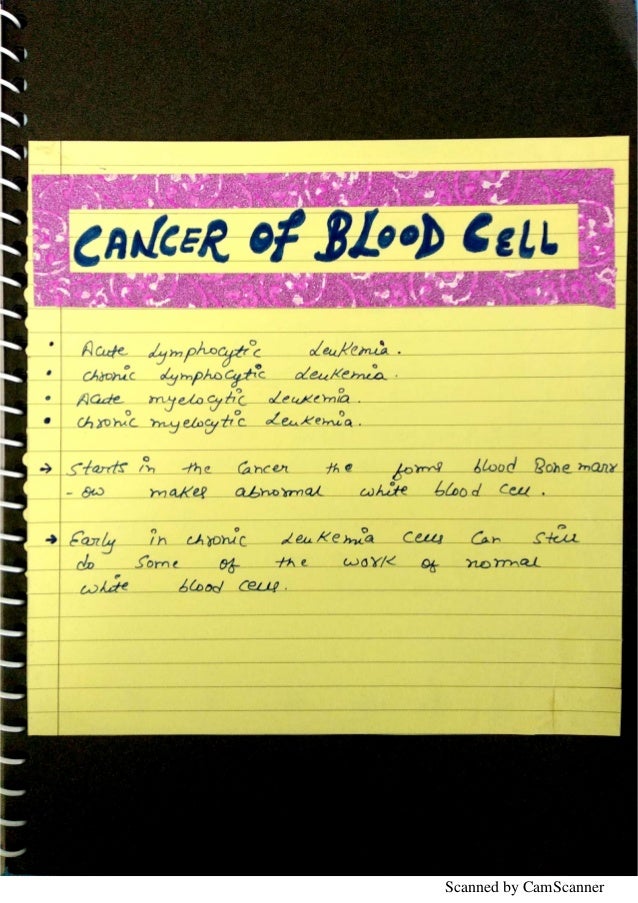 CANCER OF BLOOD CELL
• Acute Lymphocytic Leukemia.
• chronic Lymphocytic Leukemia.
• Acute myelocytic Leukemia.
• chronic myelocytic Leukemia.
→ Starts in the Cancer the forms blood Bone marr
- ow makes abnormal white blood cell.
→ Early in chronic Leukemia cells Can still
do Some of the work of normal
white blood cells.
Scanned by CamScanner